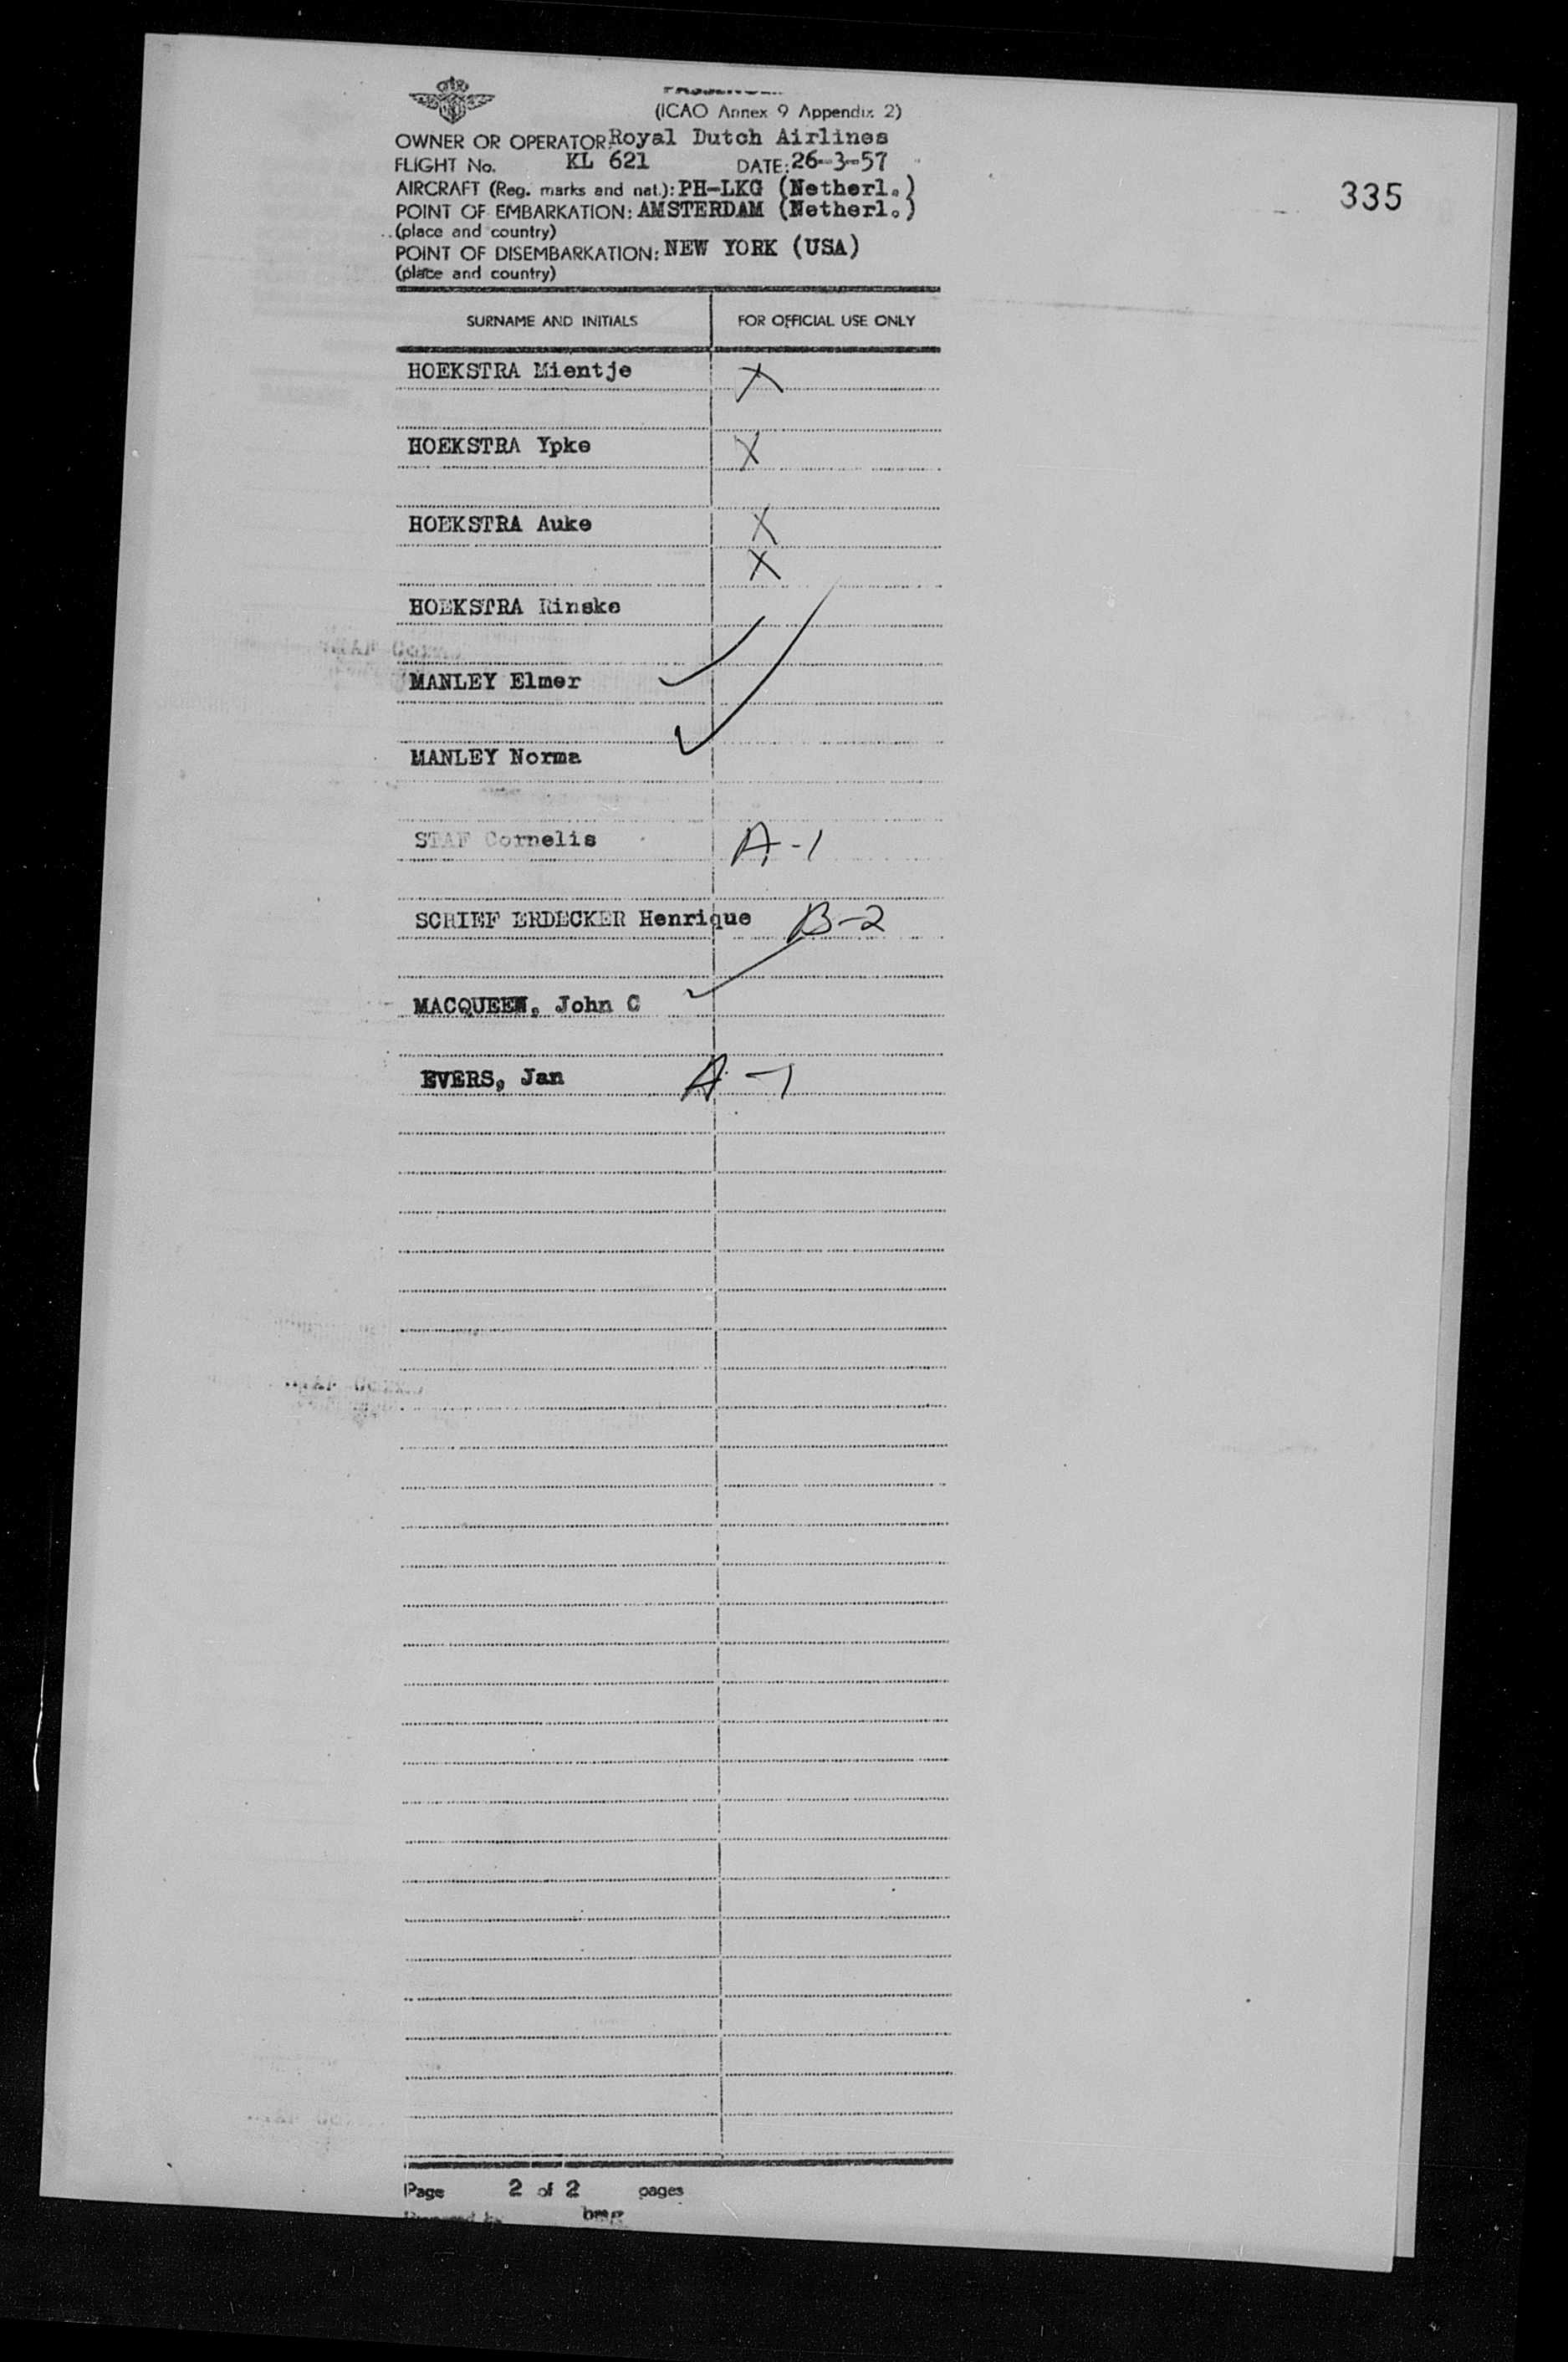 (ICAO Annex 9 Appendix 2)
335
OWNER OR OPERATOR: Royal Dutch Airlines
FLIGHT No. KL 621 DATE: 26-3-57
AIRCRAFT (Reg. marks and nat.): PH-LKG (Netherl.)
POINT OF EMBARKATION: AMSTERDAM (Netherl.)
(place and country)
POINT OF DISEMBARKATION: NEW YORK (USA)
(place and country)
SURNAME AND INITIALS FOR OFFICIAL USE ONLY
HOEKSTRA Mientje X
HOEKSTRA Ypke X
HOEKSTRA Auke X
X
HOEKSTRA Rinske
MANLEY Elmer ✓
MANLEY Norma ✓
STAF Cornelis A-1
SCHIEF ERDECKER Henrique B-2
MACQUEEN, John C ✓
EVERS, Jan A-1
Page 2 of 2 pages